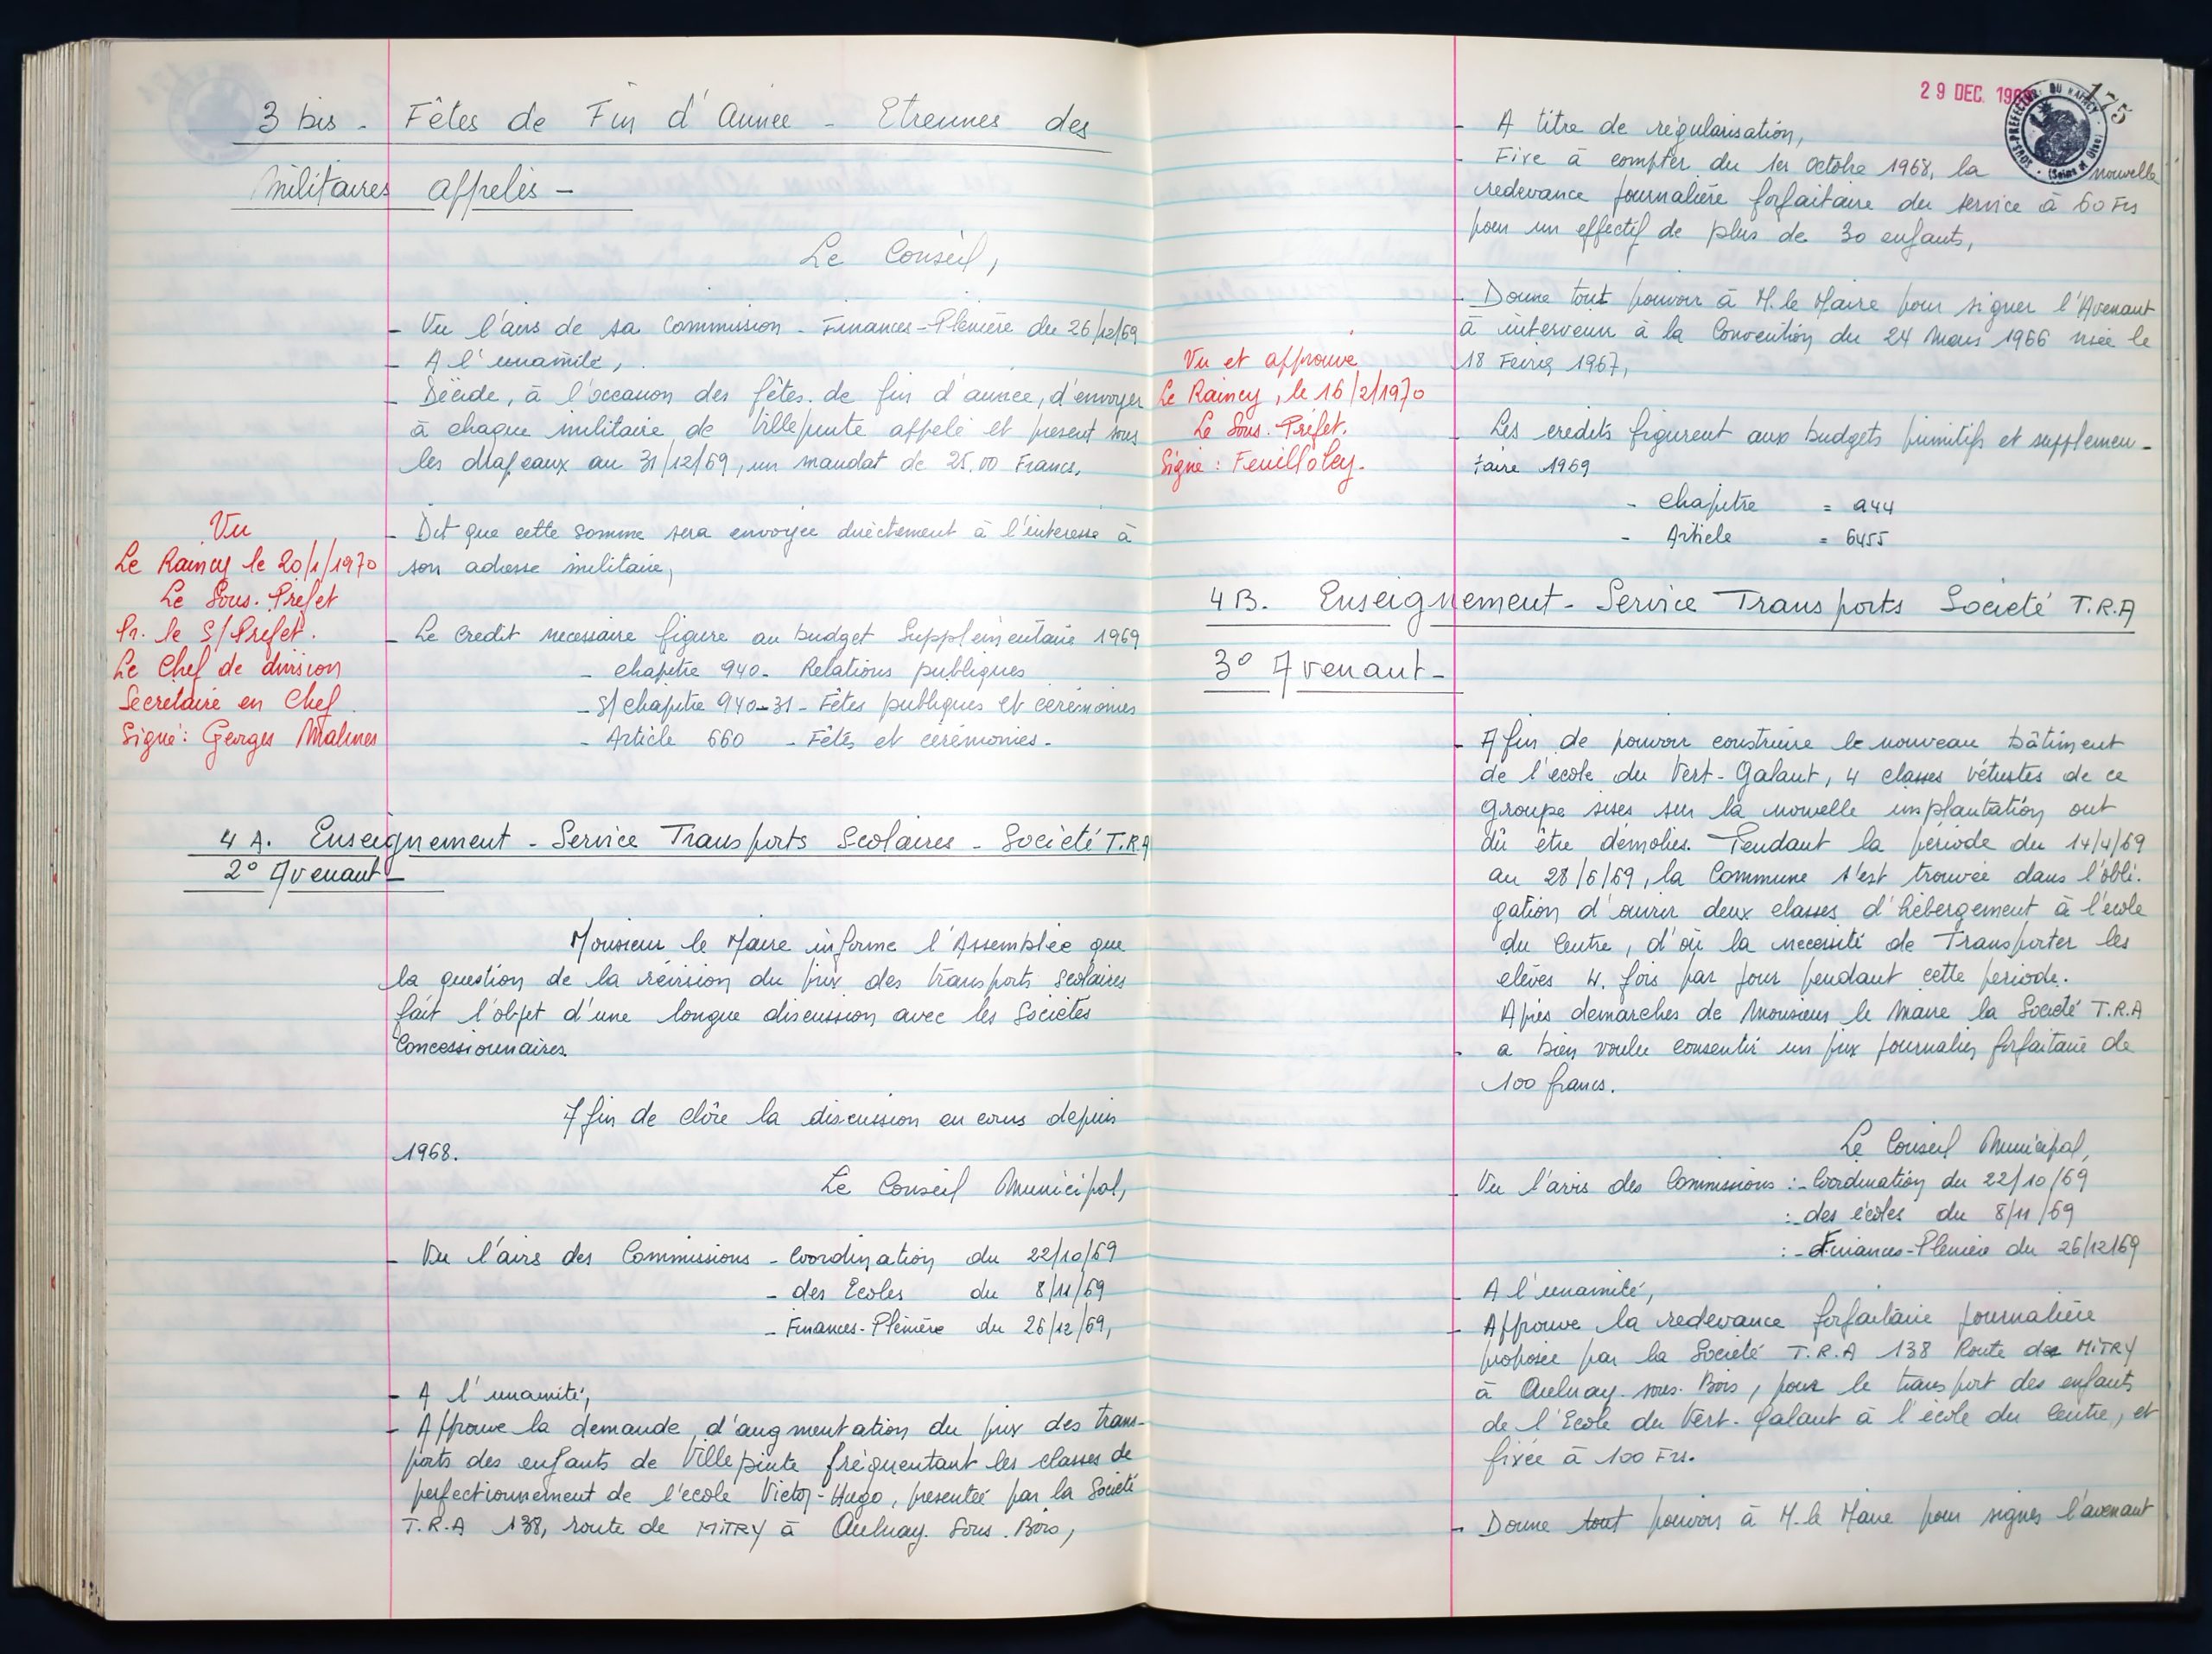 3 bis - Fêtes de Fin d'Année - Etrennes des
Militaires appelés -
Le Conseil,
- Vu l'avis de sa Commission - Finances-Plénière du 26/12/69
- A l'unamité,
- Décide, à l'occasion des fêtes de fin d'année, d'envoyer
à chaque militaire de Villepinte appelé et présent sous
les drapeaux au 31/12/69, un mandat de 25.00 Francs.
- Dit que cette somme sera envoyée directement à l'intéressé à
son adresse militaire,
- Le Crédit nécessaire figure au budget Supplémentaire 1969
- chapitre 940 - Relations publiques
- S/chapitre 940-31 - Fêtes publiques et cérémonies
- Article 660 - Fêtes et cérémonies -
Vu
Le Raincy le 20/1/1970
Le Sous-Préfet
Pr. le S/Préfet.
Le Chef de division
Secrétaire en Chef
Signé: Georges Malines
4 A. Enseignement - Service Transports Scolaires - Société T.R.A
2° Avenant -
Monsieur le Maire informe l'Assemblée que
la question de la révision du prix des transports scolaires
fait l'objet d'une longue discussion avec les Sociétés
Concessionnaires.
Afin de clôre la discussion en cours depuis
1968.
Le Conseil Municipal,
- Vu l'avis des Commissions - Coordination du 22/10/69
- des Ecoles du 8/11/69
- Finances-Plénière du 26/12/69,
- A l'unamité,
- Approuve la demande d'augmentation du prix des trans-
ports des enfants de Villepinte fréquentant les classes de
perfectionnement de l'école Victor-Hugo, présentée par la Société
T.R.A 138, route de MiTRY à Aulnay-Sous-Bois,
29 DEC. 196
175
SOUS-PRÉFECTURE DU RAINCY
(Seine et Oise)
- A titre de régularisation,
- Fixe à compter du 1er Octobre 1968, la nouvelle
redevance journalière forfaitaire du service à 60 Frs
pour un effectif de plus de 30 enfants,
- Donne tout pouvoir à M. le Maire pour signer l'Avenant
à intervenir à la Convention du 24 Mars 1966 visée le
18 Février 1967,
Vu et approuvé
Le Raincy, le 16/2/1970
Le Sous-Préfet.
Signé: Feuilloley.
- Les crédits figurent aux budgets primitifs et supplémen-
taire 1969
- Chapitre = 944
- Article = 6455
4 B. Enseignement - Service Transports Société T.R.A
3° Avenant -
- Afin de pouvoir construire le nouveau bâtiment
de l'école du Vert-Galant, 4 classes vétustes de ce
groupe sises sur la nouvelle implantation ont
dû être démolies. Pendant la période du 14/4/69
au 28/6/69, la Commune s'est trouvée dans l'obli-
gation d'ouvrir deux classes d'hébergement à l'école
du Centre, d'où la nécessité de Transporter les
élèves 4 fois par jour pendant cette période.
Après démarches de Monsieur le Maire la Société T.R.A
- a bien voulu consentir un prix journalier forfaitaire de
100 francs.
Le Conseil Municipal,
- Vu l'avis des Commissions :- Coordination du 22/10/69
:- des écoles du 8/11/69
:- Finances-Plénière du 26/12/69
- A l'unamité,
- Approuve la redevance forfaitaire journalière
proposée par la Société T.R.A 138 Route de MiTRY
à Aulnay-sous-Bois, pour le transport des enfants
de l'Ecole du Vert-Galant à l'école du Centre, et
fixée à 100 Frs.
- Donne tout pouvoirs à M. le Maire pour signer l'avenant